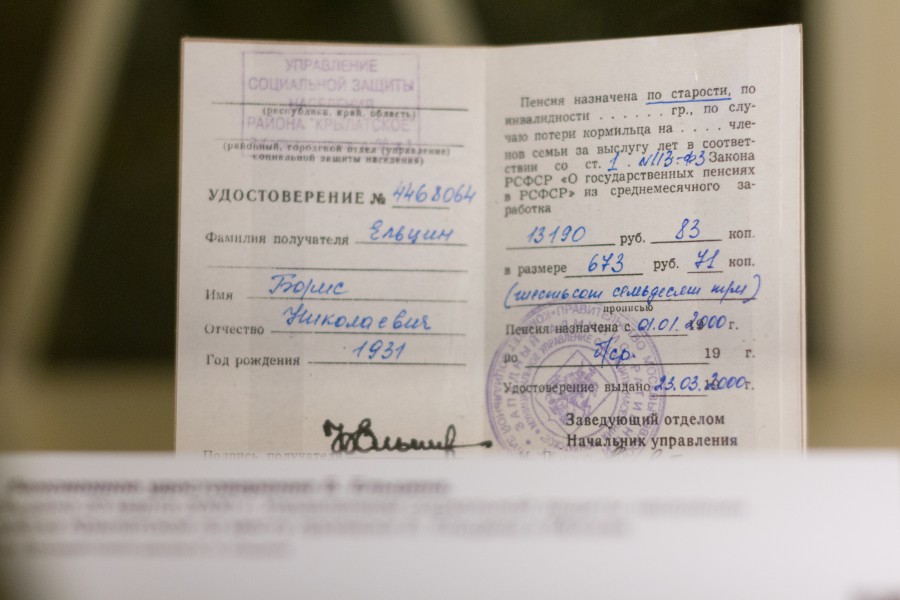 УПРАВЛЕНИЕ
СОЦИАЛЬНОЙ ЗАЩИТЫ
НАСЕЛЕНИЯ
(республика, край, область)
РАЙОНА "КРЫЛАТСКОЕ
(районный, городской отдел (управление)
социальной защиты населения)
УДОСТОВЕРЕНИЕ № 4468064
Фамилия получателя Ельцин
Имя Борис
Отчество Николаевич
Год рождения 1931
Подпись получателя
Пенсия назначена по старости, по
инвалидности . . . . . . гр., по слу-
чаю потери кормильца на . . . . чле-
нов семьи за выслугу лет в соответ-
ствии со ст. 1. №113-ФЗ Закона
РСФСР «О государственных пенсиях
в РСФСР» из среднемесячного за-
работка
13190 руб. 83 коп.
в размере 673 руб. 71 коп.
(шестьсот семьдесят три)
прописью
Пенсия назначена с 01.01. 2000 г.
по б/ср. 19 г.
Удостоверение выдано 23.03. 2000 г.
Заведующий отделом
Начальник управления